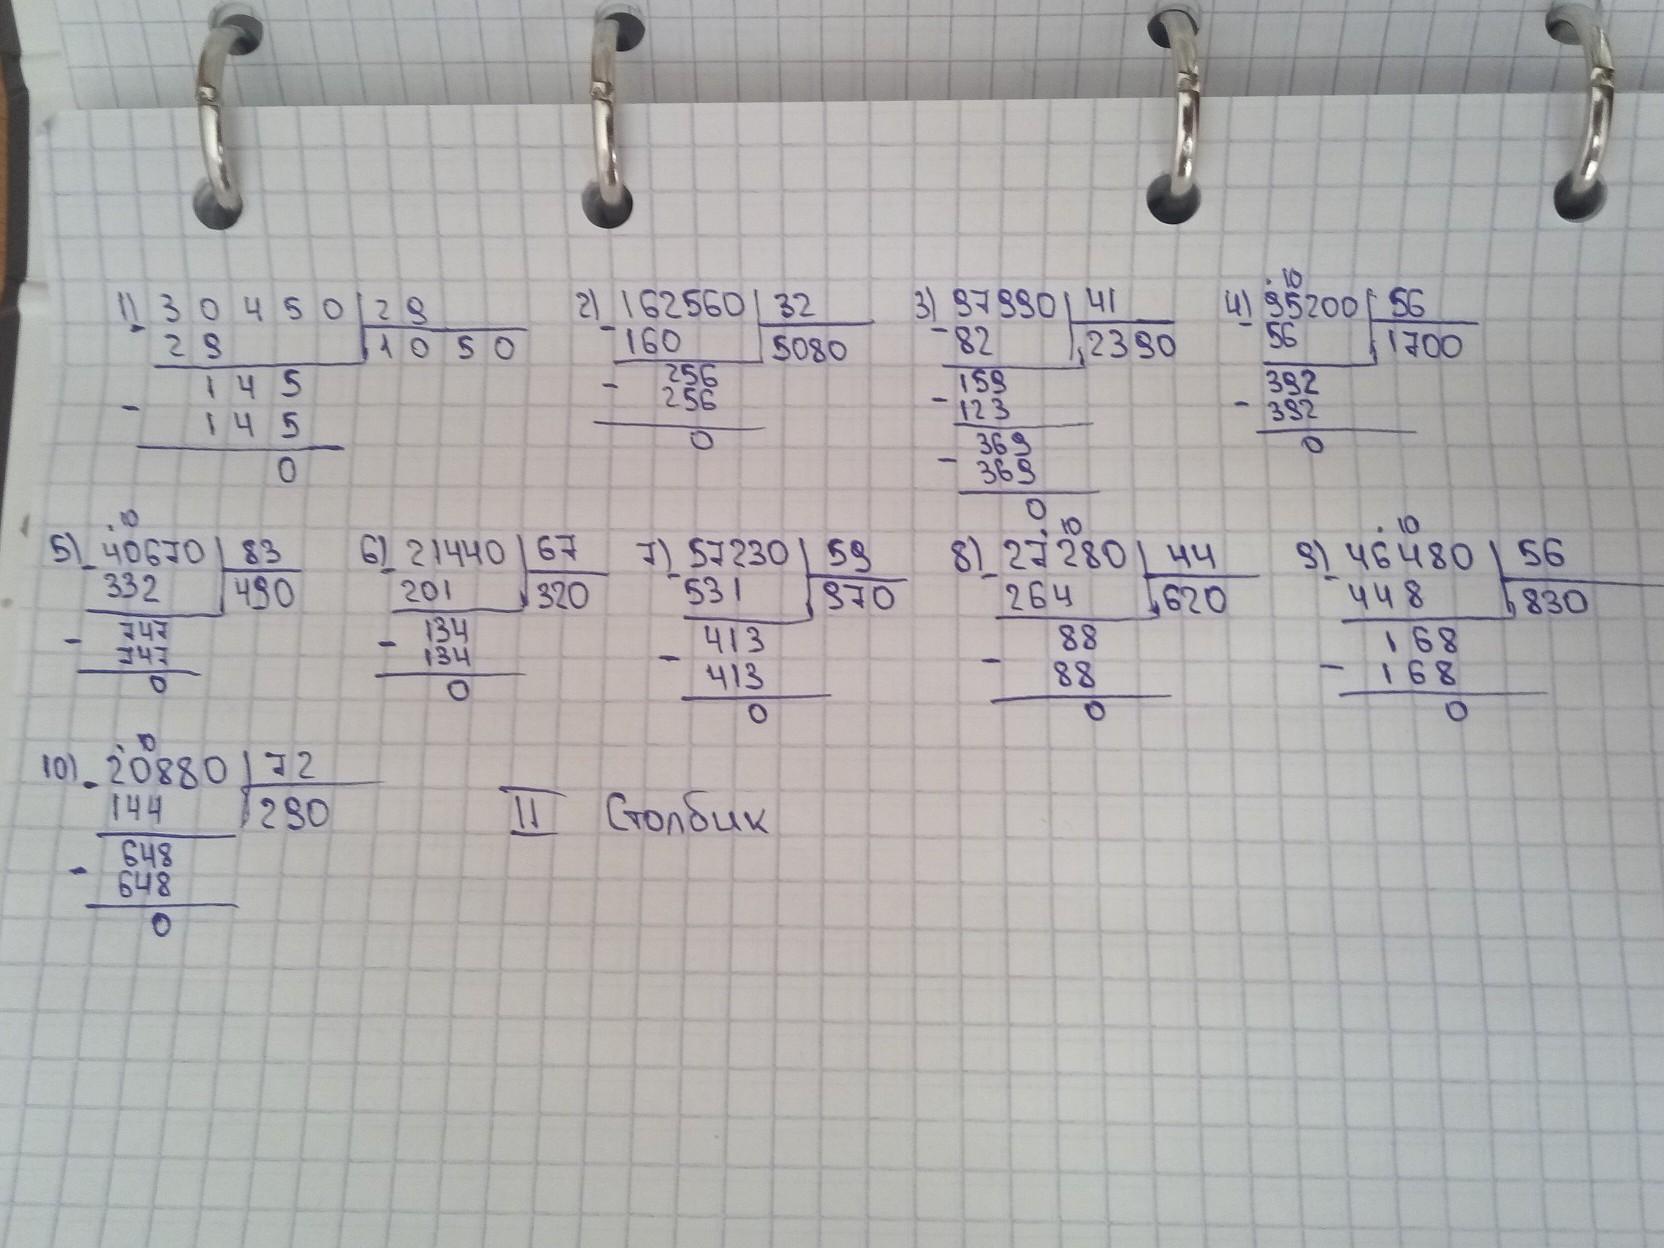 1) 30450 | 29   2) 162560 | 32   3) 97990 | 41   4) 95200 | 56
- 29 | 1050   - 160 | 5080   - 82 | 2390   - 56 | 1700
145   256   159   392
- 145   - 256   - 123   - 392
0   0   369   0
- 369
0
5) 40670 | 83   6) 21440 | 67   7) 57230 | 59   8) 27280 | 44   9) 46480 | 56
- 332 | 490   - 201 | 320   - 531 | 970   - 264 | 620   - 448 | 830
747   134   413   88   168
- 747   - 134   - 413   - 88   - 168
0   0   0   0   0
10) 20880 | 72
- 144 | 290   II Столбик
648
- 648
0